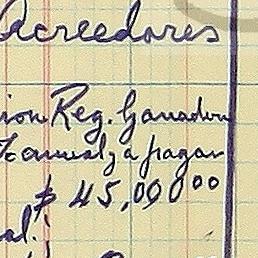 Acreedores
ion Reg. Ganadera
a pagar
$ 45,000⁰⁰
al.